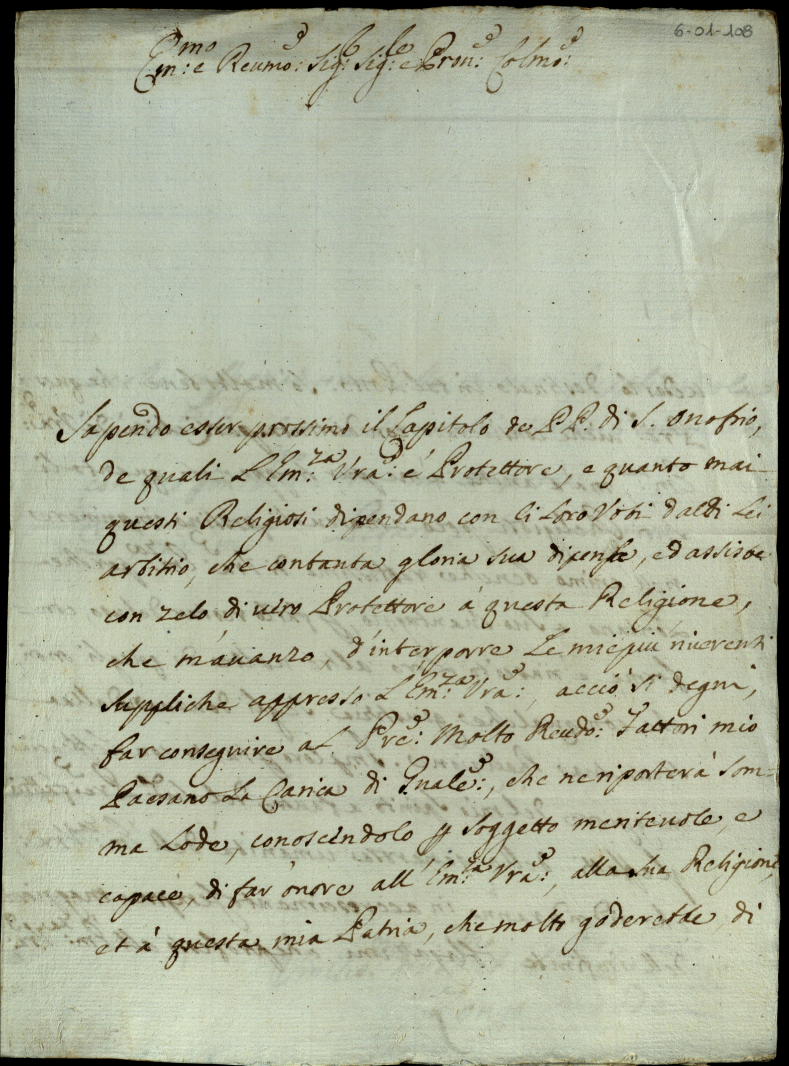 6-01-108
Em:mo e Reumo: Sig: Sig:le e Pron: Colmo:
Sapendo esser prossimo il Capitolo de P P. di S. Onofrio,
de quali L'Em:za Vra: é Protettore, e quanto mai
questi Religiosi dipendano con li Loro Voti dal di Lei
arbitrio, che contanta gloria sua dipense, ed assiste
con zelo di uero Protettore á questa Religione,
che m'auanzo, d'interporre Le mie piú riuerenti
suppliche appresso L'Em:za Vra:, acció si degni,
far conseguire al Pre: Molto Reudo: Fattori mio
Paesano La Carica di Gnale:, che ne riporterá som=
ma Lode, conoscéndolo p soggetto meriteuole, e
capace, di far'onore all'Em:za Vra:, alla sua Religione,
et á questa mia Patria, che molto goderebbe, di